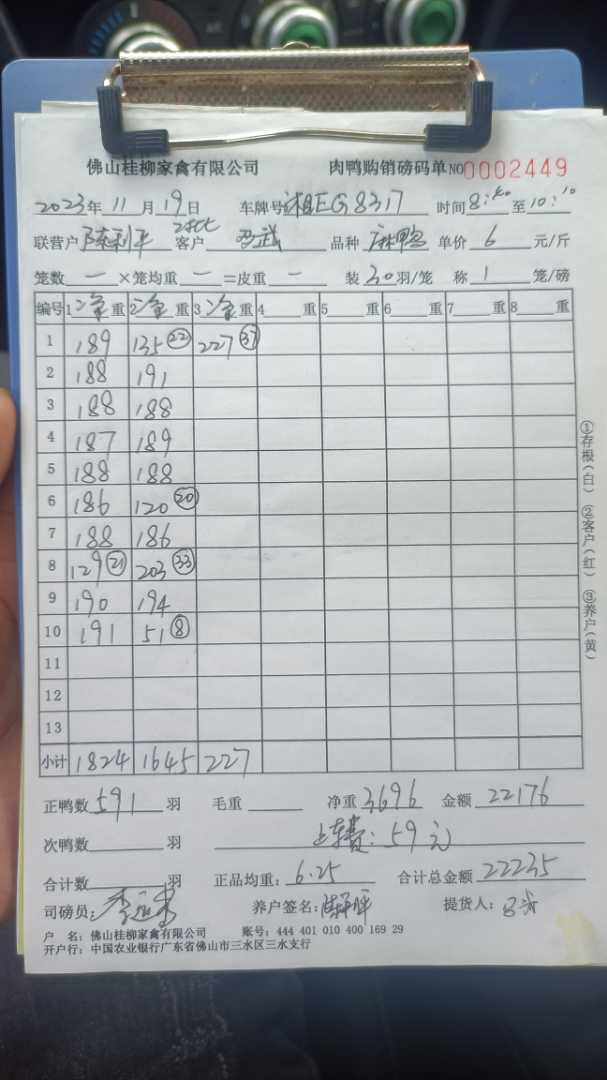 佛山桂柳家禽有限公司 肉鸭购销磅码单 NO0002449
2023年 11月 19日 车牌号 湘EG8317 时间 8:40 至 10:10
联营户 陈利平 客户 品种 麻鸭 单价 6 元/斤
笼数 一 ×笼均重 一 =皮重 一 装 30 羽/笼 称 1 笼/磅
编号 1 净 重 2 净 重 3 净 重 4 重 5 重 6 重 7 重 8 重
1 189 135 (22) 227 (37)
2 188 191
3 188 188
4 187 189
5 188 188
6 186 120 (20)
7 188 186
8 129 (21) 203 (33)
9 190 194
10 191 51 (8)
11
12
13
小计 1824 1645 227
正鸭数 591 羽 毛重 净重 3696 金额 22176
次鸭数 羽 上车费:59元
合计数 羽 正品均重: 6.25 合计总金额 22235
司磅员: 养户签名: 提货人:
户 名: 佛山桂柳家禽有限公司 账号: 444 401 010 400 169 29
开户行: 中国农业银行广东省佛山市三水区三水支行
①存根(白) ②客户(红) ③养户(黄)